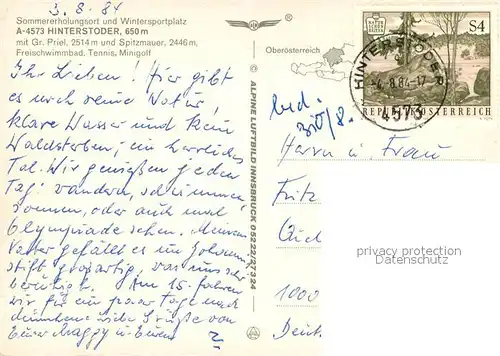 3. 8. 84
Sommererholungsort und Wintersportplatz
A-4573 HINTERSTODER, 650 m
mit Gr. Priel, 2514 m und Spitzmauer, 2446 m,
Freischwimmbad, Tennis, Minigolf
Ihr Lieben! Hier gibt
es noch reine Natur,
klare Wasser und kein
Waldsterben; ein herrliches
Tal. Wir genießen jeden
Tag: wandern, schwimmen,
sonnen, oder auch mal
Olympiade sehen. Meinem
Vater gefällt es im
stift großartig, was uns sehr
beruhigt. Am 15. fahren
wir für ein paar Tage nach
München. Liebe Grüße von
Eurer Maggy u. Eurem
ALPINE LUFTBILD INNSBRUCK 05222/67324
Oberösterreich
S4
HINTERSTODER
-4.8.84-17
4573
REPUBLIK ÖSTERREICH
Herrn u. Frau
Fritz
privacy protection
© AnsichtskartenVersand
1000